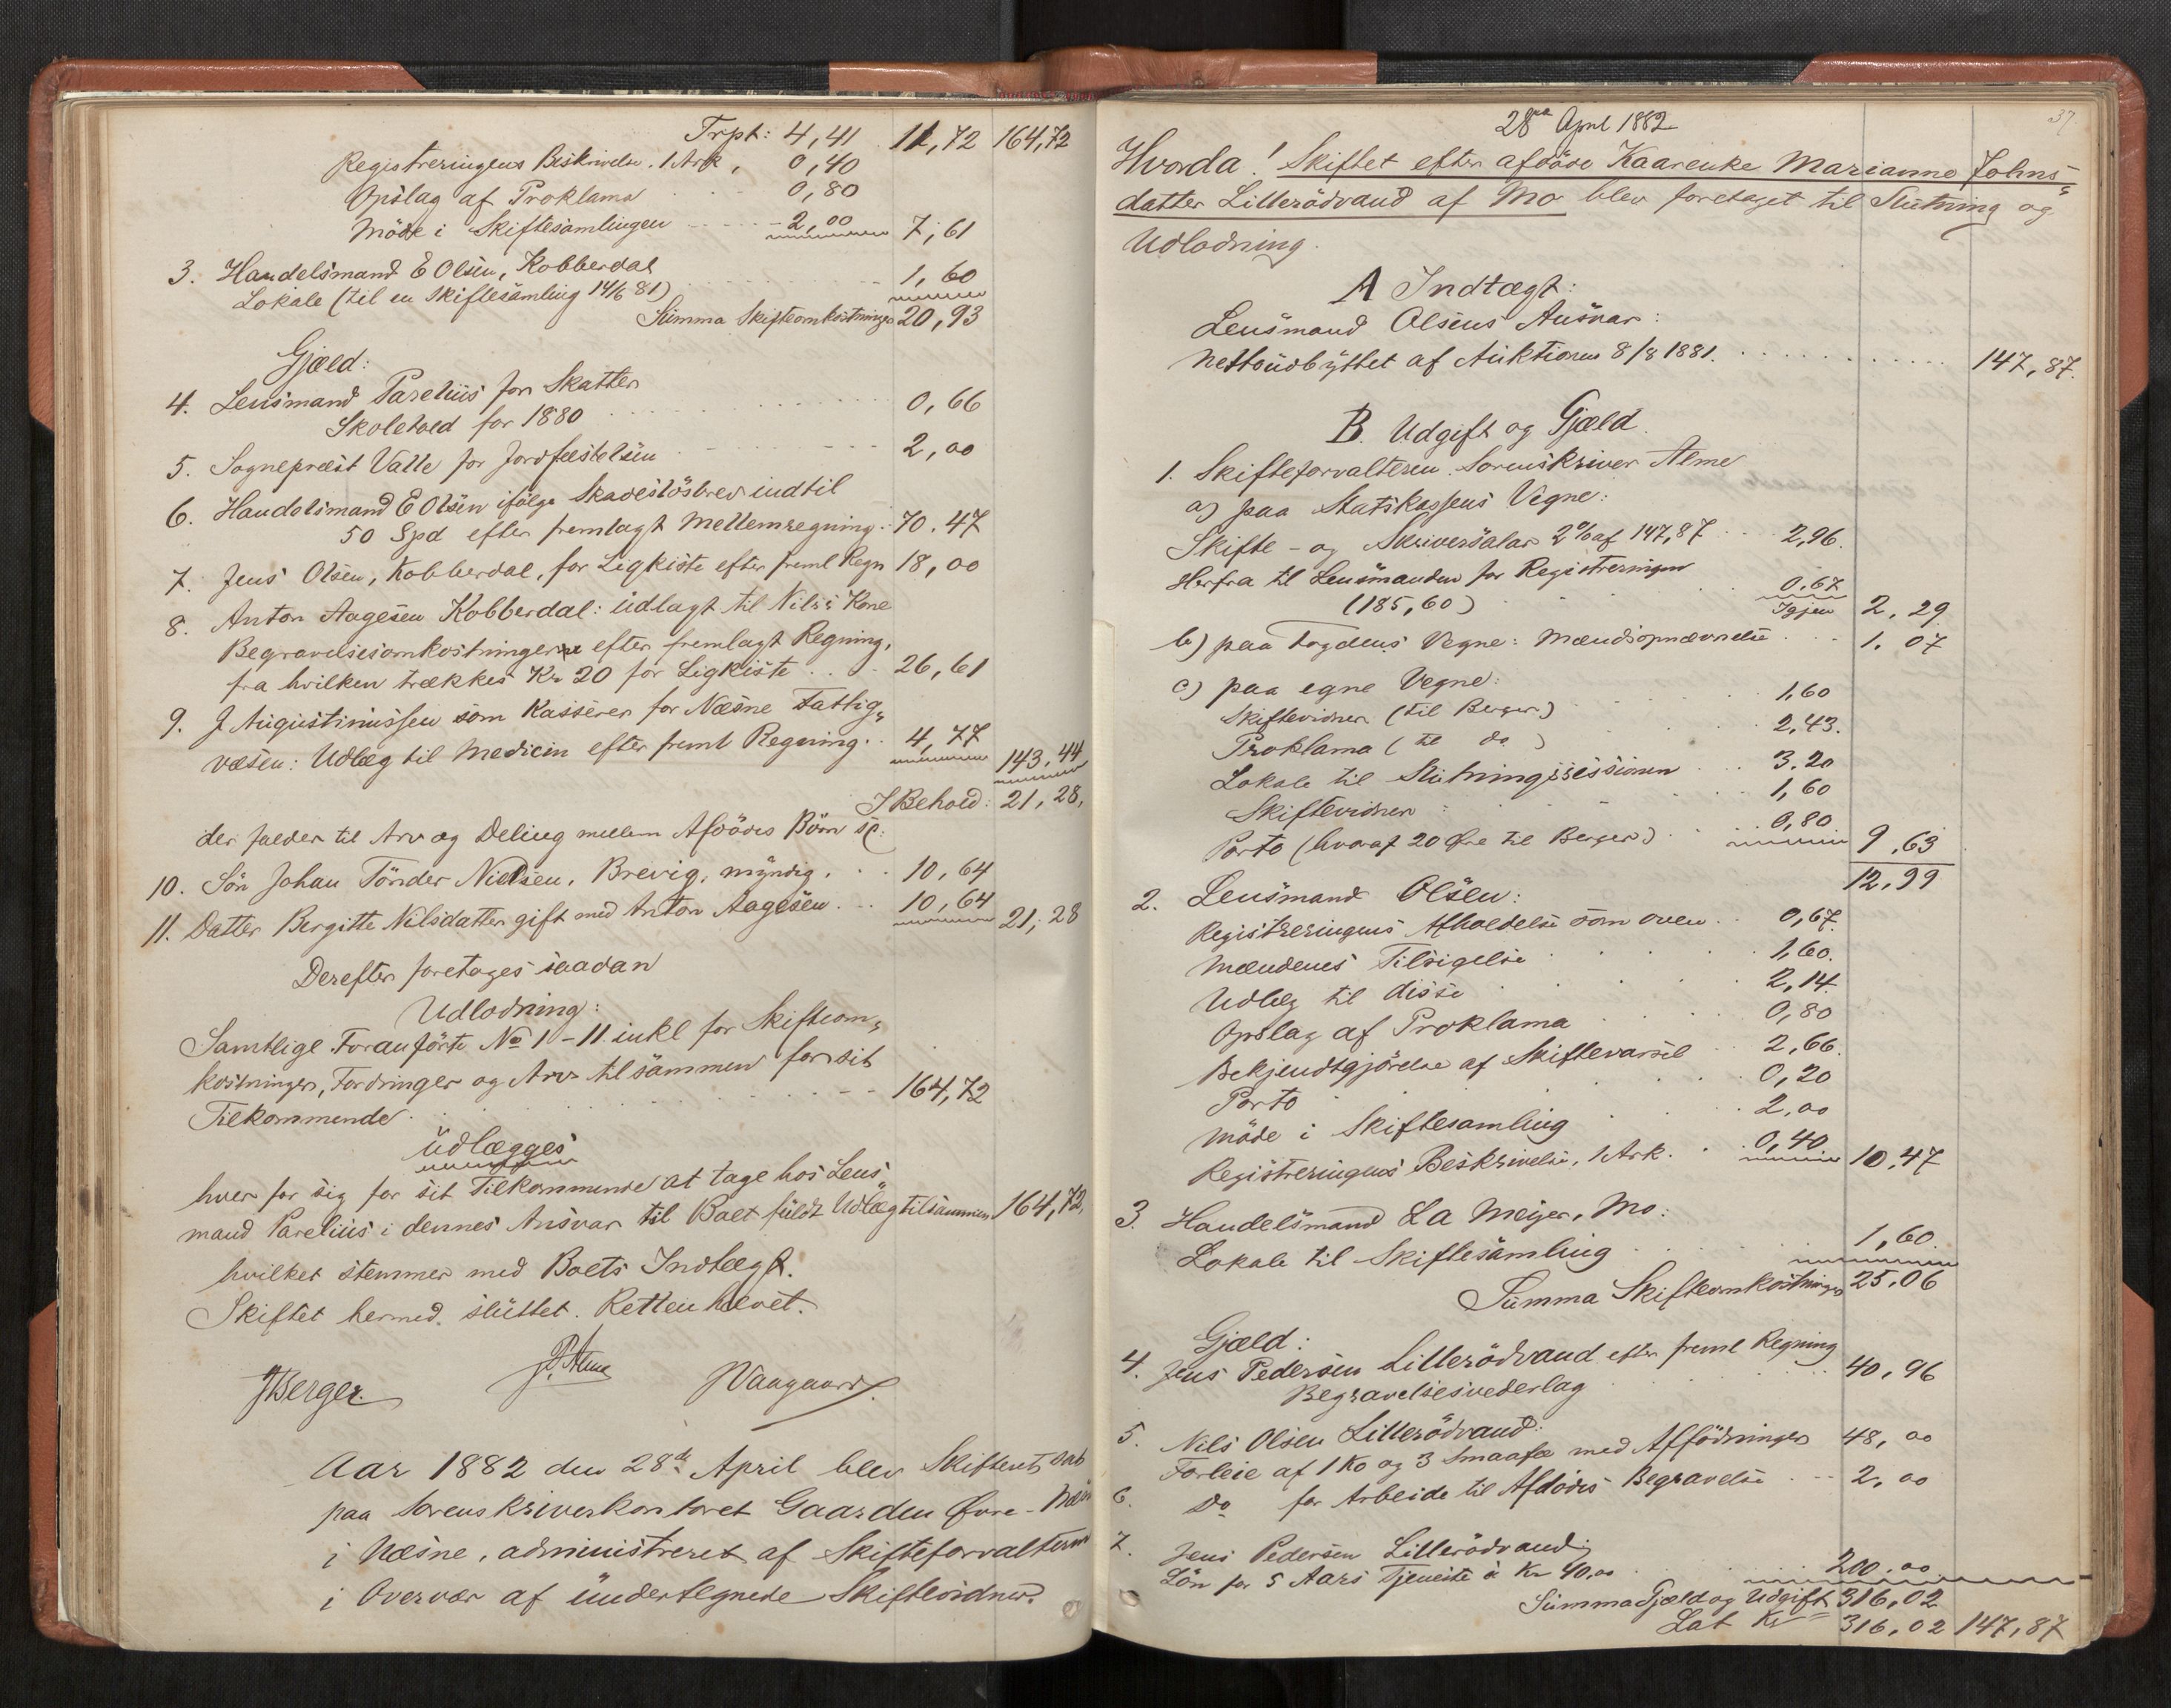 Trpt: 4,41 11,72 164,72
Registreringens Beskrivelse. 1 Ark, 0,40
Opslag af Proklama 0,80
Möde i Skiftesamlingen 2,00 7,61
3. Handelsmand E Olsen, Kobberdal
Lokale (til en Skiftesamling 14/6 81) 1,60
Summa Skifteomkostninger 20,93
Gjæld:
4. Lensmand Parelius for Skatter
Skoletold for 1880 0,66
5. Sognepræst Valle for Jordfæstelsen 2,00
6. Handelsmand E Olsen ifölge Skadeslösbrev indtil
50 Spd efter fremlagt Mellemregning. 70.47
7. Jens Olsen, Kobberdal, for Ligkiste efter freml Regn 18,00
8. Anton Aagesen Kobberdal: udlagt til Nils's Kone
Begravelsesomkostningerne efter fremlagt Regning,
fra hvilken trækkes Kr 20 for Ligkiste 26,61
9. J Augustinussen som Kasserer for Næsne Fattig„
væsen: Udlæg til Medicin efter freml Regning. 4,77 143,44
I Behold: 21,28,
der falder til Arv og Deling mellem Afdödes Börn sc:
10. Sön Johan Tönder Nielsen, Brevig, myndig. 10,64
11. Datter Bergitte Nilsdatter gift med Anton Aagesen 10,64 21,28
Derefter foretages saadan
Udlodning:
Samtlige Foranförte No 1-11 inkl for Skifteom„
kostninger, Fordringer og Arv tilsammen for sit
Tilkommende 164,72
udlægges
hver for sig for sit Tilkommende at tage hos Lens„
mand Parelius i dennes Ansvar til Boet fuldt Udlæg tilsammen 164,72,
hvilket stemmer med Boets Indtægt.
Skiftet hermed sluttet. Retten hævet.
JBerger. P. Alme JVaagaard
Aar 1882 den 28de April blev Skifteret sat
paa Sorenskriverkontoret Gaarden Övre-
i Næsne, administreret af Skifteforvalteren
i Overvær af undertegnede Skiftevidner.
37
28de April 1882
Hvorda! Skiftet efter afdöde Kaarenke Marianne Johns„
datter Lillerödvand af Mo blev foretaget til Slutning og
Udlodning.
A Indtægt:
Lensmand Olsens Ansvar:
Nettoudbyttet af Auktionen 8/8 1881. 147,87.
B. Udgift og Gjæld.
1. Skifteforvalteren Sorenskriver Alme
a) paa Statskassens Vegne:
Skifte- og Skriversalær 2% af 147,87 2,96.
Herfra til Lensmanden for Registreringen
(185,60) 0.67
Igjen 2,29
b) paa Fogdens Vegne: Mændsopnævnelse 1.07
c) paa egne Vegne:
Skiftevidner (til Berger) 1,60
Proklama (til do ) 2,43.
Lokale til Slutningssessionen 3.20
Skiftevidner 1,60
Porto (hvoraf 20 Øre til Berger) 0,80 9,63
12,99
2. Lensmand Olsen:
Registreringens Afholdelse som oven 0,67.
Mændenes Tilsigelse 1,60.
Udlæg til disse 2,14.
Opslag af Proklama 0,80
Bekjendtgjörelse af Skiftevarsel 2,66.
Porto 0,20
Möde i Skiftesamling 2,00
Registreringens Beskrivelse, 1 Ark. 0,40 10,47
3. Handelsmand L A Meyer, Mo:
Lokale til Skiftesamling 1,60.
Summa Skifteomkostninger 25,06
Gjæld:
4. Jens Pedersen Lillerödvand efter freml Regning
Begravelsesvederlag 40,96
5. Nils Olsen Lillerödvand:
Forleie af 1 Ko og 3 Smaafæ med Affödninger 48,00
6. Do for Arbeide til Afdödes Begravelse 2,00
7. Jens Pedersen Lillerödvand,
Lön for 5 Aars Tjeneste à Kr 40,00 200.00
Summa Gjæld og Udgift 316,02
Lat Kr 316,02 147,87